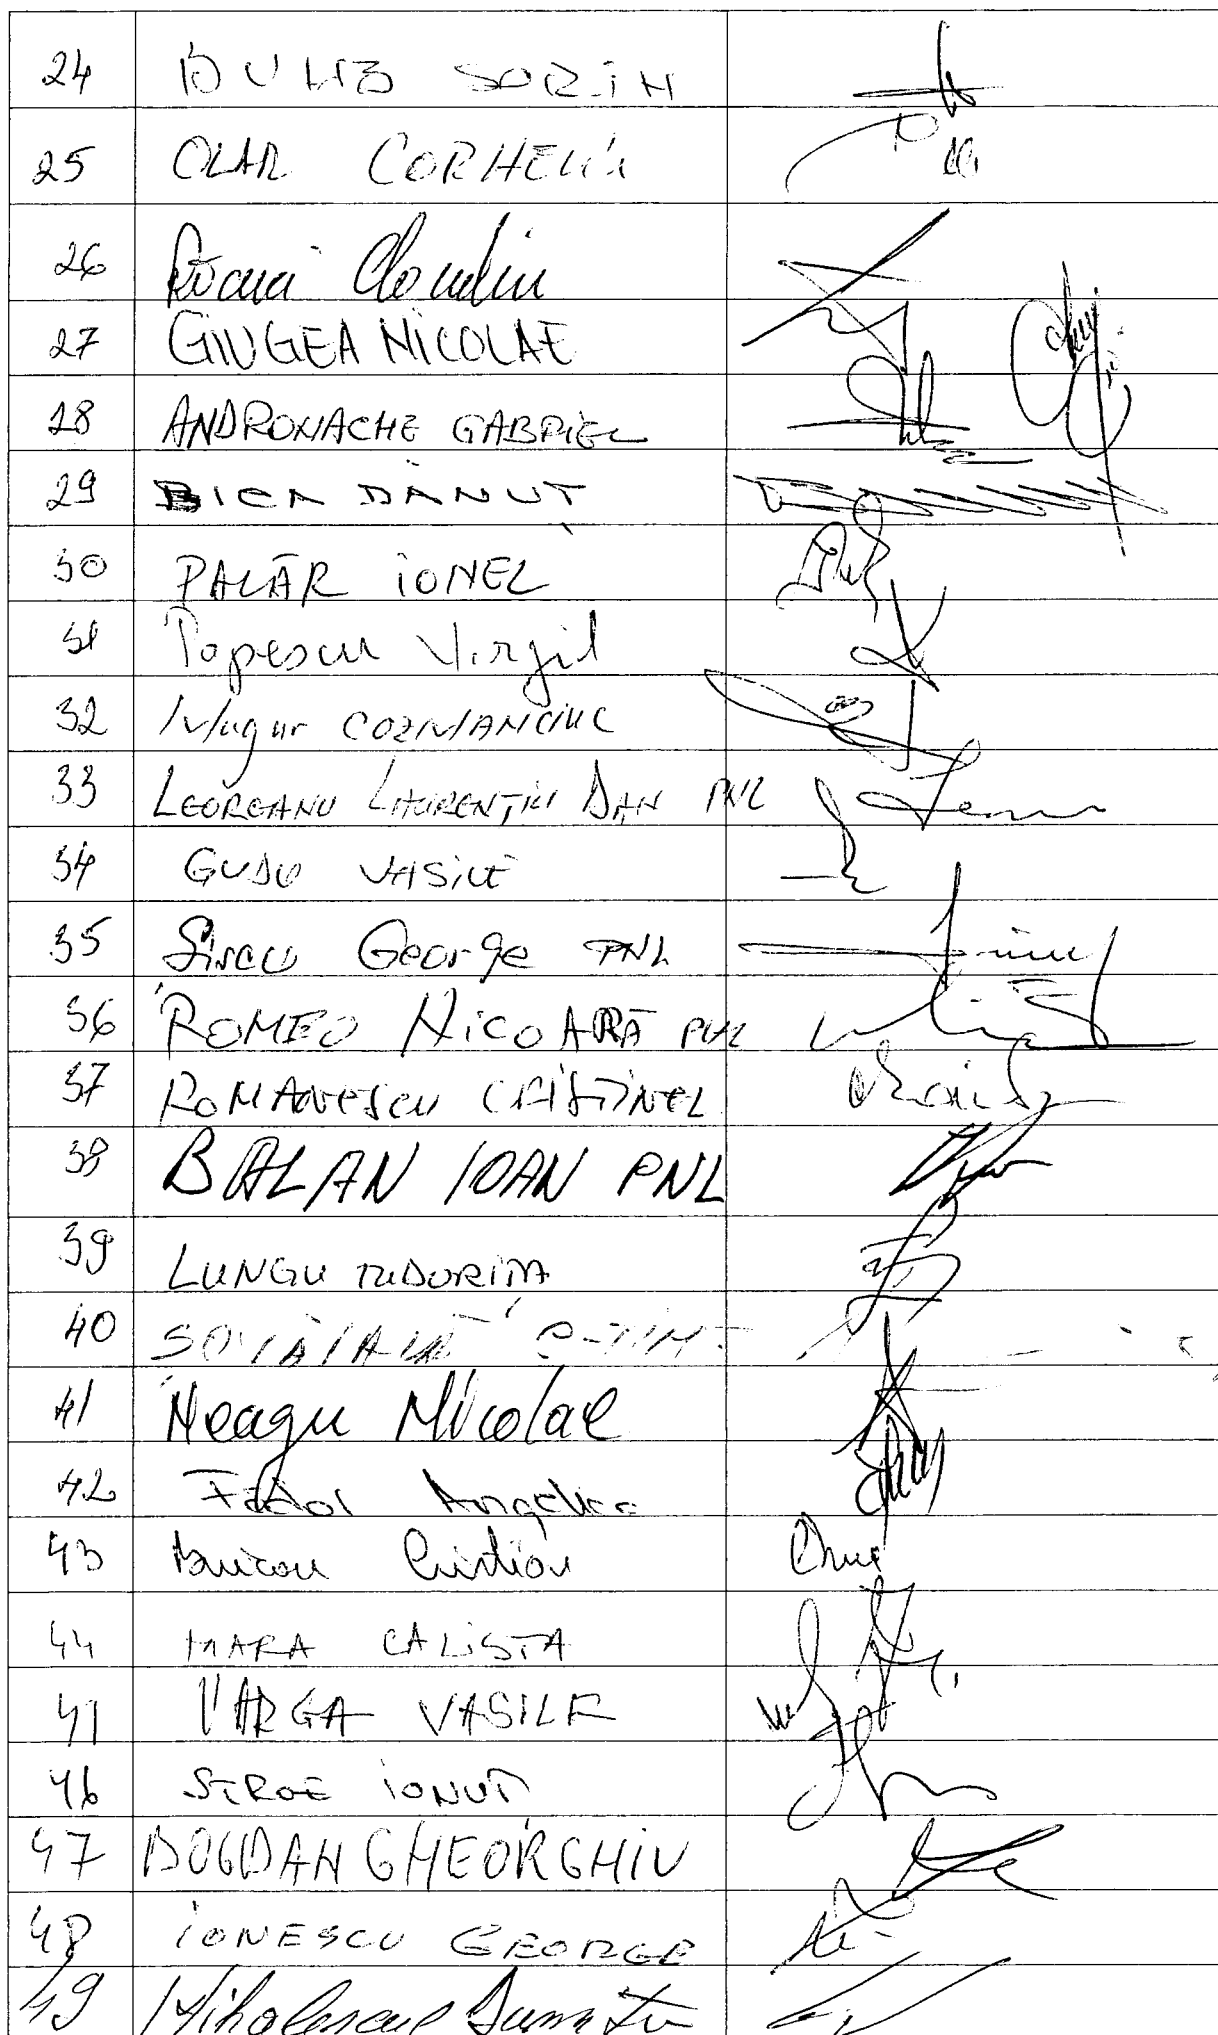 24 SORIN
25 OLAR CORNELIU
26 Claudiu
27 GIUGEA NICOLAE
28 ANDRONACHE GABRIEL
29 BICA DĂNUȚ
30 PALĂR IONEL
31 Popescu Virgil
32 Mugur COZMANCIUC
33 LEOREANU LAURENȚIU DAN PNL
34 GUDU VASILE
35 Șișcu George PNL
36 ROMEO NICOARĂ PNL
37 ROMANESCU CRISTINEL
38 BALAN IOAN PNL
39 LUNGU TUDORIȚA
40
41 Neagu Nicolae
42 Fădor Angelica
43 Buican Cristian
44 MARA CALISTA
41 VARGA VASILE
46 STROE IONUȚ
47 BOGDAN GHEORGHIU
48 IONESCU GEORGE
49 Mihalescul Dumitru